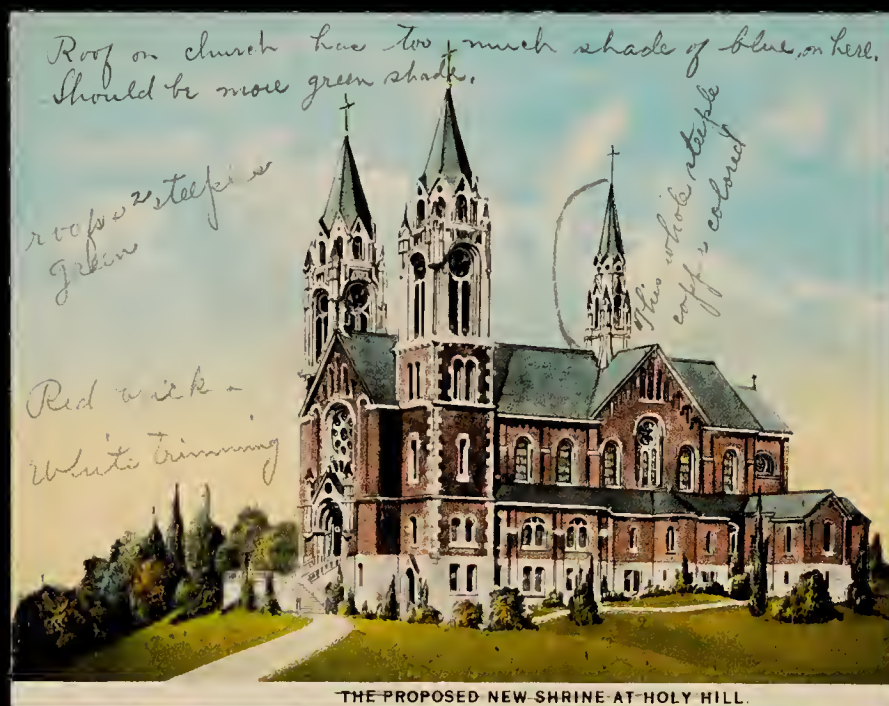 Roof on church has too much shade of blue, on here.
Should be more green shade.
roofs 2 steeples
green
This whole steeple
copp colored
Red
White trimming
THE PROPOSED NEW SHRINE AT HOLY HILL.